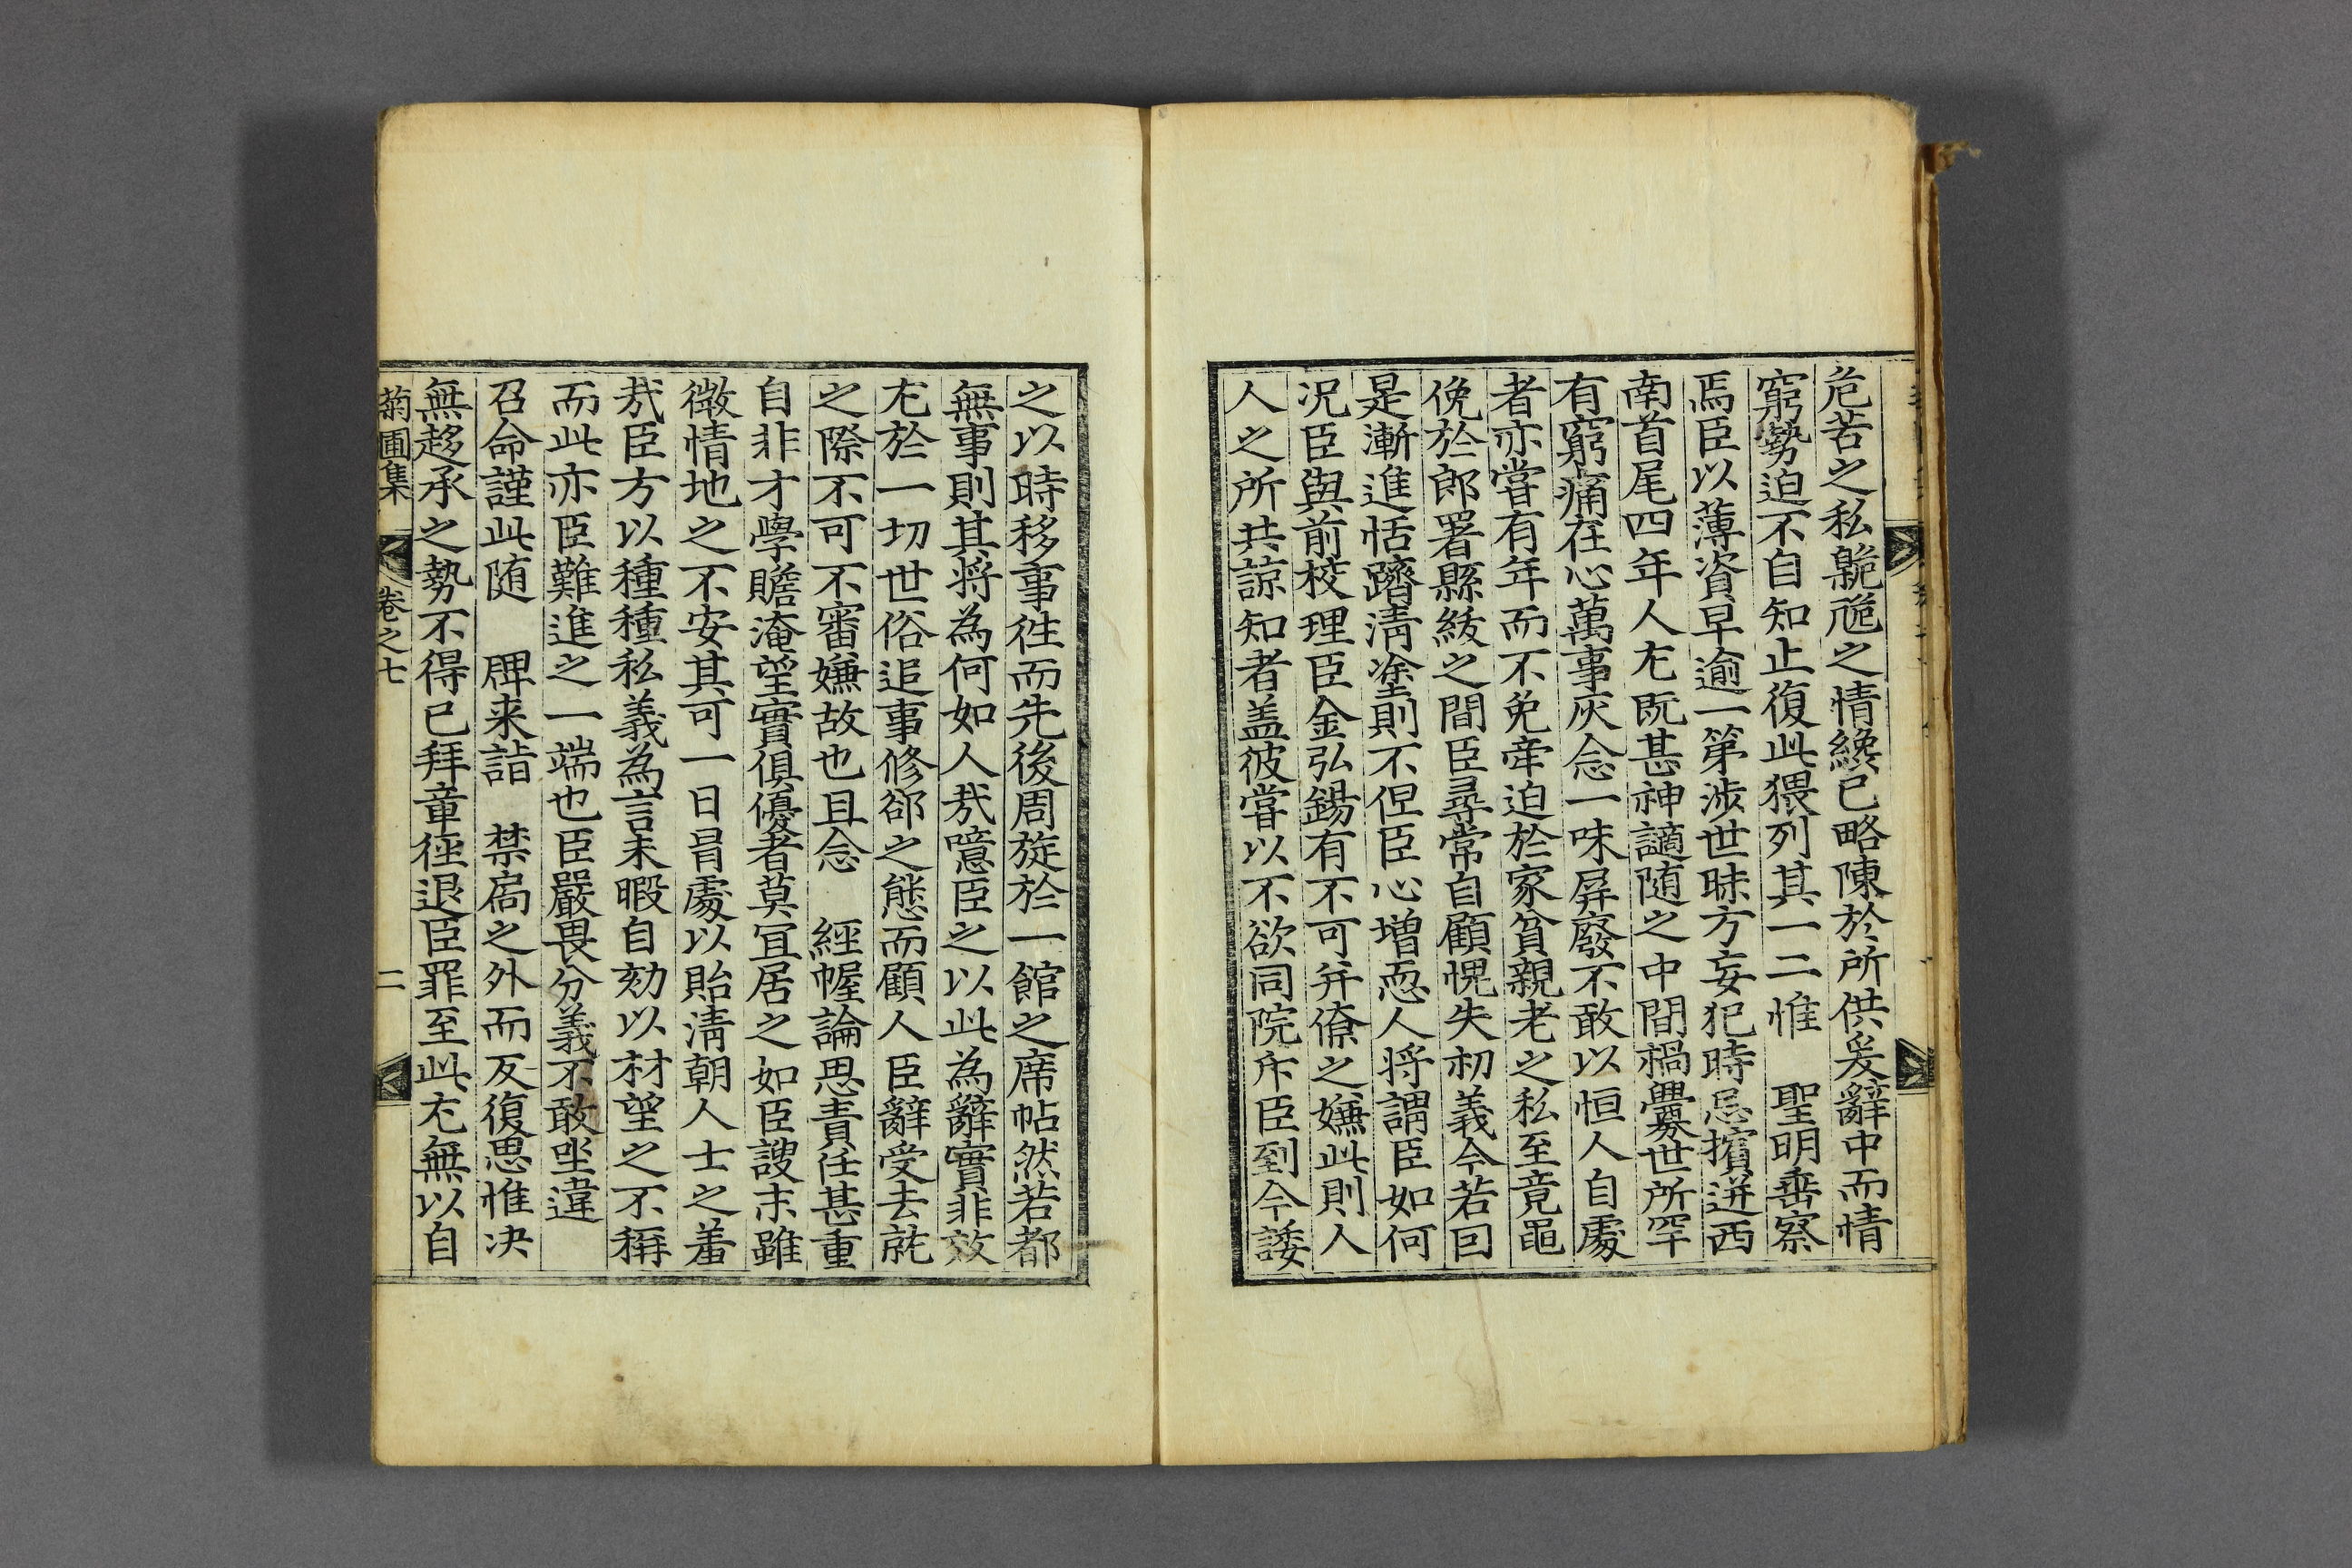 危苦之私臲卼之情纔已略陳於所供爰辭中而情
窮勢迫不自知止復此猥列其一二惟 聖明垂察
焉臣以薄資早逾一第涉世昧方妄犯時忌擯迸西
南首尾四年人尤既甚神讁随之中間禍釁世所罕
有窮痛在心萬事灰念一味屛廢不敢以恒人自處
者亦嘗有年而不免牽迫於家貧親老之私至竟黽
俛於郎署縣紱之間臣尋常自顧怳失初義今若因
是漸進恬躋淸塗則不但臣心增恧人將謂臣如何
况臣與前校理臣金弘錫有不可幷僚之嫌此則人
人之所共諒知者盖彼嘗以不欲同院斥臣到今諉
之以時移事徃而先後周旋於一館之席帖然若都
無事則其將為何如人㦲噫臣之以此為辭實非效
尤於一切世俗追事修郤之態而顧人臣辭受去就
之際不可不審嫌故也且念 經幄論思責任甚重
自非才學贍淹望實俱優者莫冝居之如臣謏末雖
微情地之不安其可一日冐處以貽淸朝人士之羞
㦲臣方以種種私義為言未暇自劾以材望之不稱
而此亦臣難進之一端也臣嚴畏分義不敢坐違
召命謹此随 牌来詣 禁扃之外而反復思惟决
無趍承之勢不得已拜章徑退臣罪至此尤無以自
菊圃集 卷之七 二